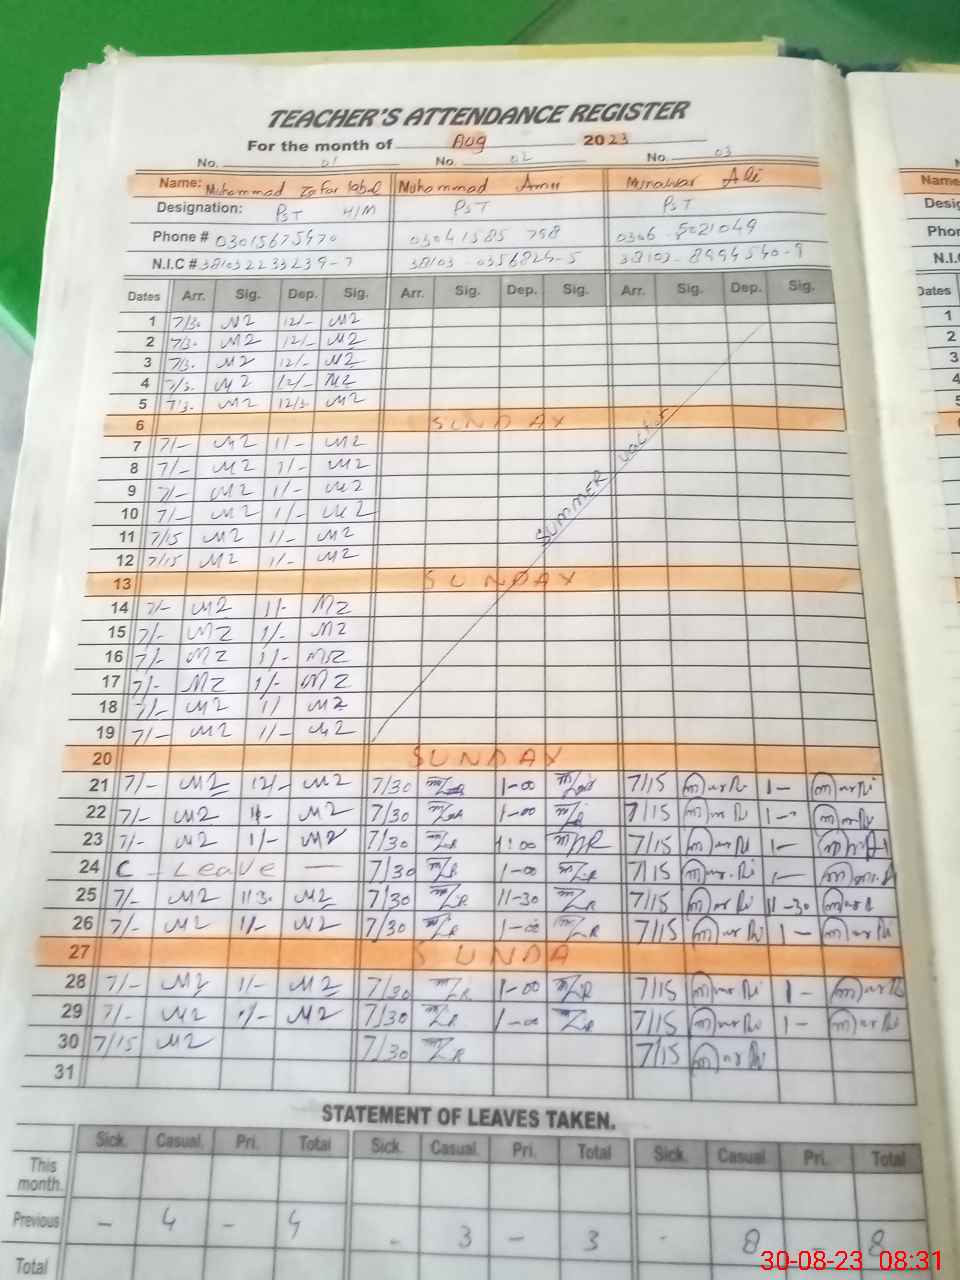 TEACHER'S ATTENDANCE REGISTER
For the month of Aug 2023
No. 01 No. 02 No. 03
Name: Muhammad Zafar Iqbal Muhammad Amir Munawar Ali
Designation: PST H/M PST PST
Phone # 03015675470 03041585 798 0306 5021049
N.I.C # 38103 2233239-7 38103-0356824-5 38103-8994540-9
Dates Arr. Sig. Dep. Sig. Arr. Sig. Dep. Sig. Arr. Sig. Dep. Sig.
1 7/30 MZ 12/- MZ
2 7/3. MZ 12/- MZ
3 7/3. MZ 12/- MZ
4 7/3. MZ 12/- MZ
5 7/3. MZ 12/3. MZ
6 SUNDAY
7 7/- MZ 1/- MZ
8 7/- MZ 1/- MZ
9 7/- MZ 1/- MZ
10 7/- MZ 1/- MZ
SUMMER
11 7/15 MZ 1/- MZ
12 7/15 MZ 1/- MZ
13 SUNDAY
14 7/- MZ 1/- MZ
15 7/- MZ 1/- MZ
16 7/- MZ 1/- MZ
17 7/- MZ 1/- MZ
18 7/- MZ 1/ MZ
19 7/- MZ 1/- MZ
20 SUNDAY
21 7/- MZ 12/- MZ 7/30 1-00 7/15 1-
22 7/- MZ 1- MZ 7/30 1-00 7/15 1--
23 7/- MZ 1/- MZ 7/30 1:00 7/15 1-
24 C - Leave - 7/30 1-00 7/15 1-
25 7/- MZ 1130 MZ 7/30 11-30 7/15 11-30
26 7/- MZ 1/- MZ 7/30 1-00 7/15 1-
27 SUNDA
28 7/- MZ 1/- MZ 7/30 1-00 7/15 1-
29 7/- MZ 1/- MZ 7/30 1-00 7/15 1-
30 7/15 MZ 7/30 7/15
31
STATEMENT OF LEAVES TAKEN.
Sick. Casual. Pri. Total Sick. Casual. Pri. Total Sick. Casual Pri. Total
This month.
Previous - 4 - 4 - 3 - 3 - 8 - 8
Total
Name
Desig
Phon
N.I.C
Dates
1
2
3
4
5
30-08-23 08:31